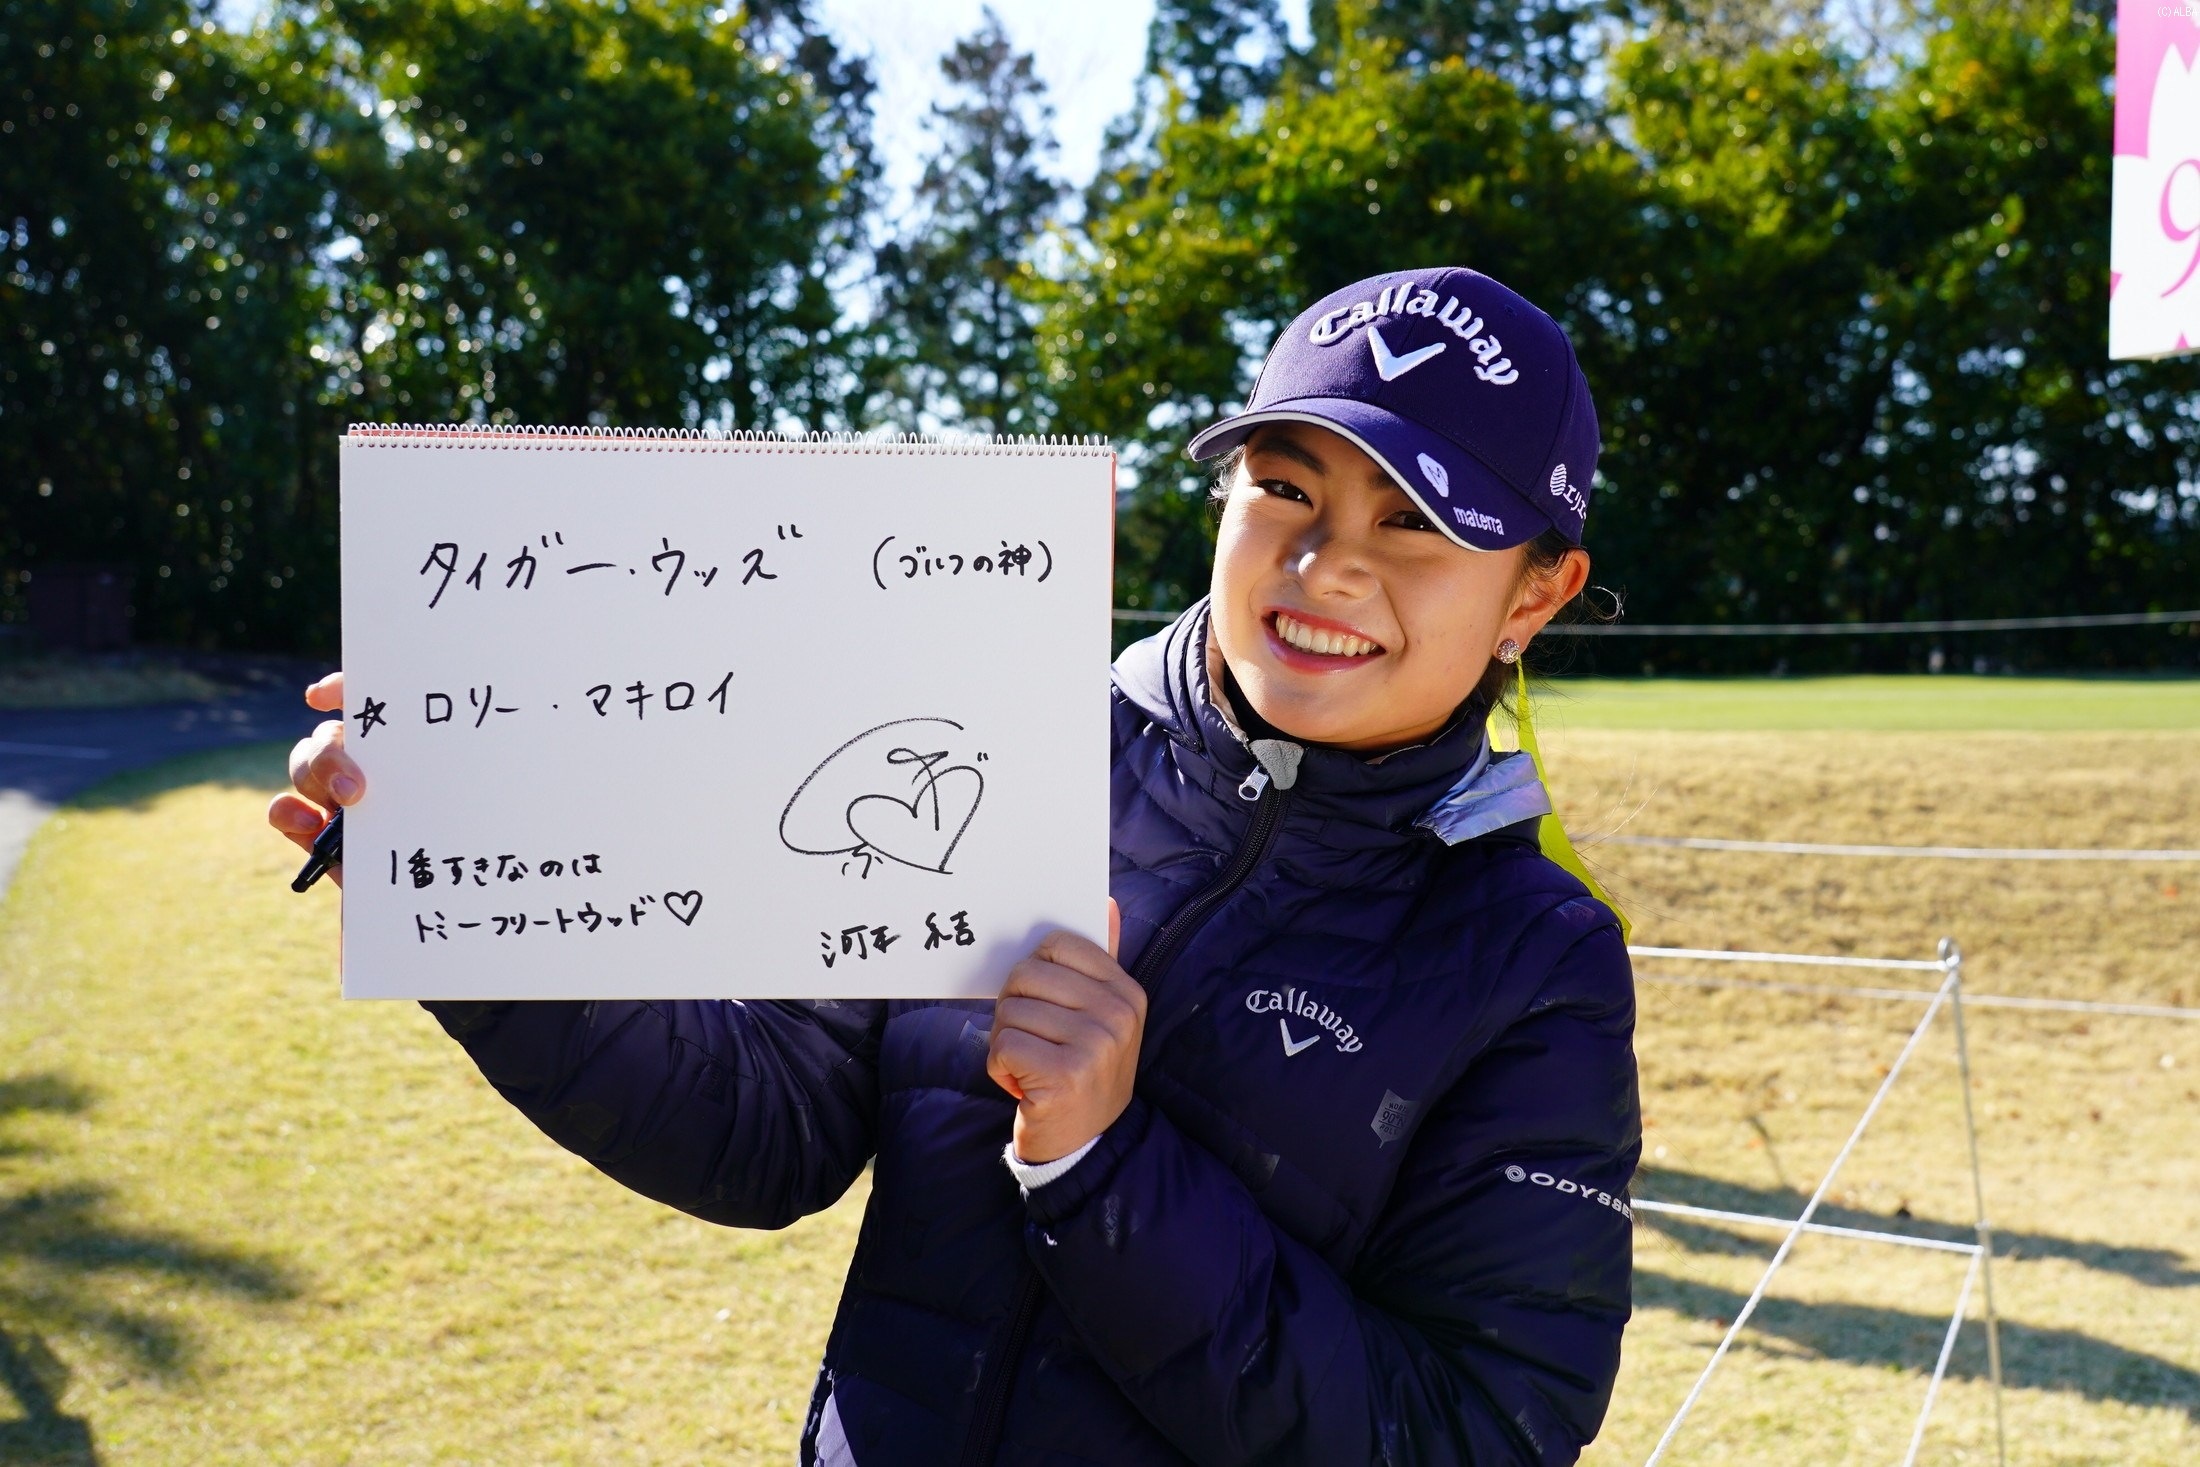 (C)ALBA
9
Callaway
materra
エリエ
タイガー・ウッズ (ゴルフの神)
☆ ロリー・マキロイ
1番すきなのは
トミーフリートウッド♡
河本 結
Callaway
ODYSSE